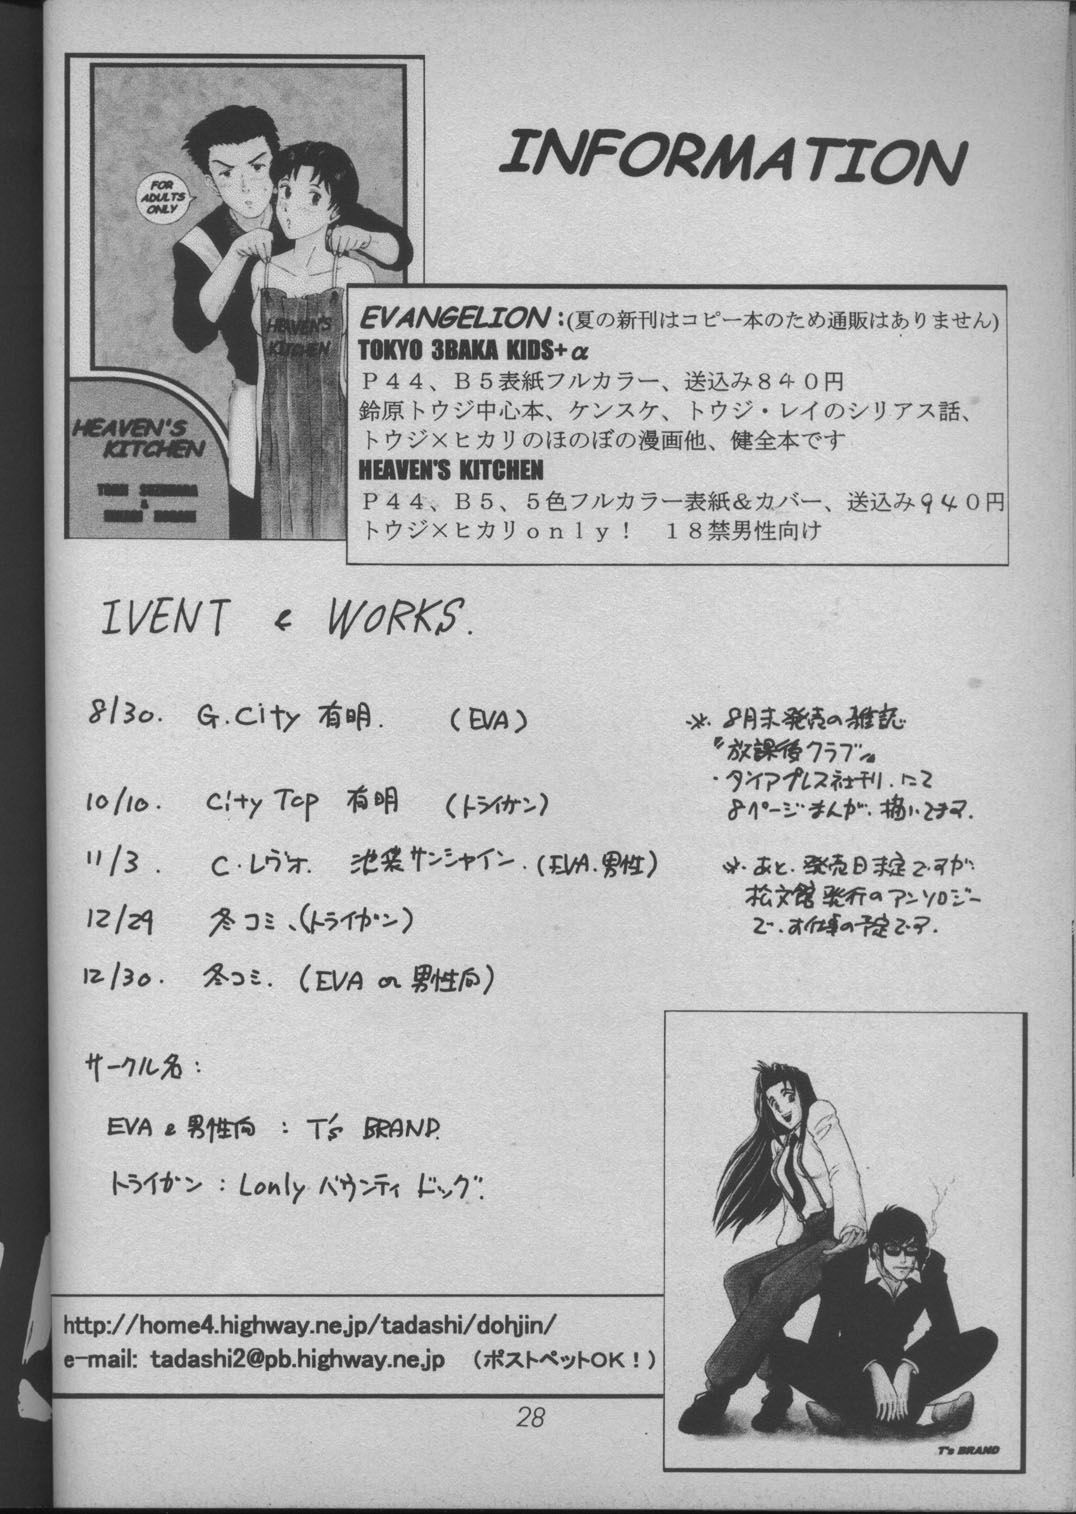 INFORMATION
FOR
ADULTS
ONLY
HEAVEN'S
KITCHEN
HEAVEN'S
KITCHEN
TOUJI SUZUHARA
&
HIKARI HORAKI
EVANGELION:(夏の新刊はコピー本のため通販はありません)
TOKYO 3BAKA KIDS+α
P44、B5表紙フルカラー、送込み840円
鈴原トウジ中心本、ケンスケ、トウジ・レイのシリアス話、
トウジ×ヒカリのほのぼの漫画他、健全本です
HEAVEN'S KITCHEN
P44、B5、5色フルカラー表紙&カバー、送込み940円
トウジ×ヒカリonly! 18禁男性向け
IVENT & WORKS.
8/30. G.City 有明. (EVA)
10/10. City Top 有明 (トライガン)
11/3. C.レヴォ. 池袋サンシャイン.(EVA.男性)
12/29 冬コミ、(トライガン)
12/30. 冬コミ. (EVA or 男性向)
※. 8月末発売の雑誌
『放課後クラブ』
・タイアプレス社刊.にて
8ページまんが.描いてます.
※.あと.発売日未定ですが
松文館発行のアンソロジー
で.お仕事の予定です.
サークル名:
EVA & 男性向 : T's BRAND.
トライガン : Lonly バウンティ ドッグ.
http://home4.highway.ne.jp/tadashi/dohjin/
e-mail: tadashi2@pb.highway.ne.jp (ポストペットOK!)
T's BRAND
28